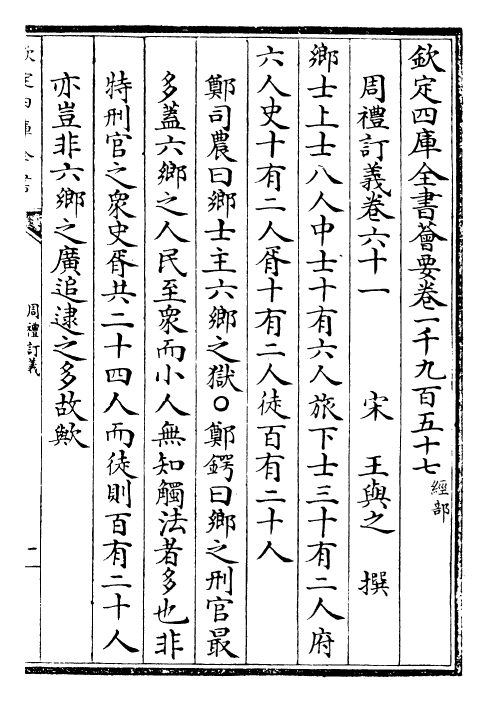 欽定四庫全書薈要卷一千九百五十七 經部
周禮訂義卷六十一 宋 王與之 撰
鄉士上士八人中士十有六人旅下士三十有二人府
六人史十有二人胥十有二人徒百有二十人
鄭司農曰鄉士主六鄉之獄○鄭鍔曰鄉之刑官最
多蓋六鄉之人民至衆而小人無知觸法者多也非
特刑官之衆史胥共二十四人而徒則百有二十人
亦豈非六鄉之廣追逮之多故歟
欽定四庫全書
周禮訂義
一